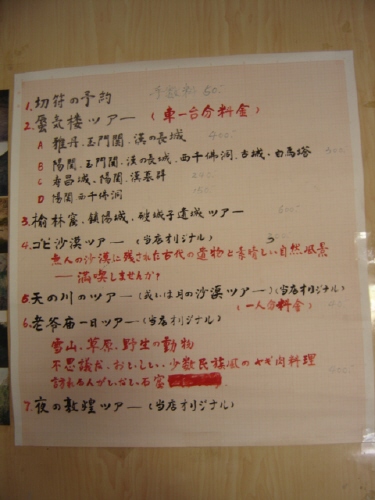 1.切符の予約 手数料 50
2.蜃気楼ツアー (車一台分料金)
A 雅丹、玉門關、漢の長城 400
B 陽関、玉門関、漢の長城、西千佛洞、古城、白馬塔
C 寿昌城、陽関、漢墓群
D 陽関西千佛洞
3.楡林窟、鎖陽城、破城子遺城ツアー
4.ゴビ沙漠ツアー (当店オリジナル)
無人の沙漠に残された古代の遺物と素晴しい自然風景
——満喫しませんか?
5.天の川のツアー(或いは月の沙漠ツアー)(当店オリジナル)
(一人分料金)
6.老爺廟一日ツアー(当店オリジナル)
雪山、草原、野生の動物
不思議だ、おいしい、少数民族風のヤギ肉料理
訪れる人がいない石窟
7.夜の敦煌ツアー(当店オリジナル)